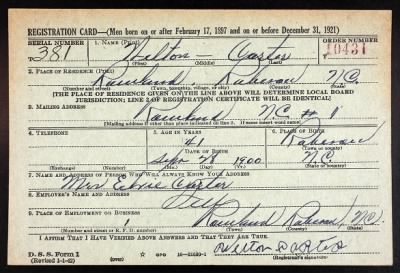 REGISTRATION CARD—(Men born on or after February 17, 1897 and on or before December 31, 1921)
SERIAL NUMBER
1. NAME (Print)
ORDER NUMBER
381
Carter
10431
(First) (Middle) (Last)
2. PLACE OF RESIDENCE (Print)
Rowland, Robeson N.C.
(Number and street) (Town, township, village, or city) (County) (State)
[THE PLACE OF RESIDENCE GIVEN ON THE LINE ABOVE WILL DETERMINE LOCAL BOARD
JURISDICTION; LINE 2 OF REGISTRATION CERTIFICATE WILL BE IDENTICAL]
3. MAILING ADDRESS
Rowland N.C. # 1
[Mailing address if other than place indicated on line 2. If same insert word same]
4. TELEPHONE
5. AGE IN YEARS
6. PLACE OF BIRTH
41
Robeson
DATE OF BIRTH
(Town or county)
28 1900
N.C.
(Exchange) (Number) (Mo.) (Day) (Yr.) (State or country)
7. NAME AND ADDRESS OF PERSON WHO WILL ALWAYS KNOW YOUR ADDRESS
Mrs Carter
8. EMPLOYER'S NAME AND ADDRESS
Self
9. PLACE OF EMPLOYMENT OR BUSINESS
Rowland Robeson N.C.
(Number and street or R. F. D. number) (Town) (County) (State)
I AFFIRM THAT I HAVE VERIFIED ABOVE ANSWERS AND THAT THEY ARE TRUE.
D. S. S. Form 1
(Revised 1-1-42) (over) ☆ GPO 16—21630-1
Carter
(Registrant's signature)